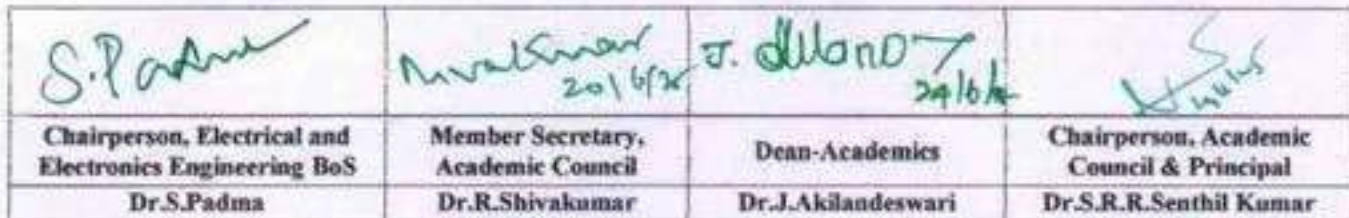 S.Padma
20/6/25
J.
24/6/25
Chairperson, Electrical and
Electronics Engineering BoS
Member Secretary,
Academic Council
Dean-Academics
Chairperson, Academic
Council & Principal
Dr.S.Padma
Dr.R.Shivakumar
Dr.J.Akilandeswari
Dr.S.R.R.Senthil Kumar